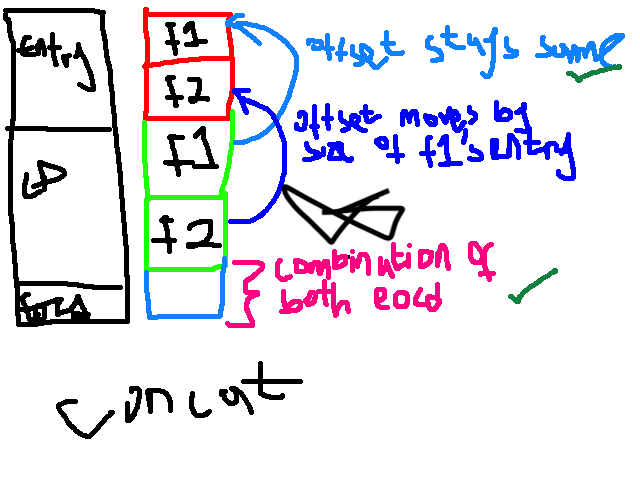 Entry
f1
f2
f1
f2
CD
offset stays same
offset moves by
size of f1's entry
combination of
both eocd
concat